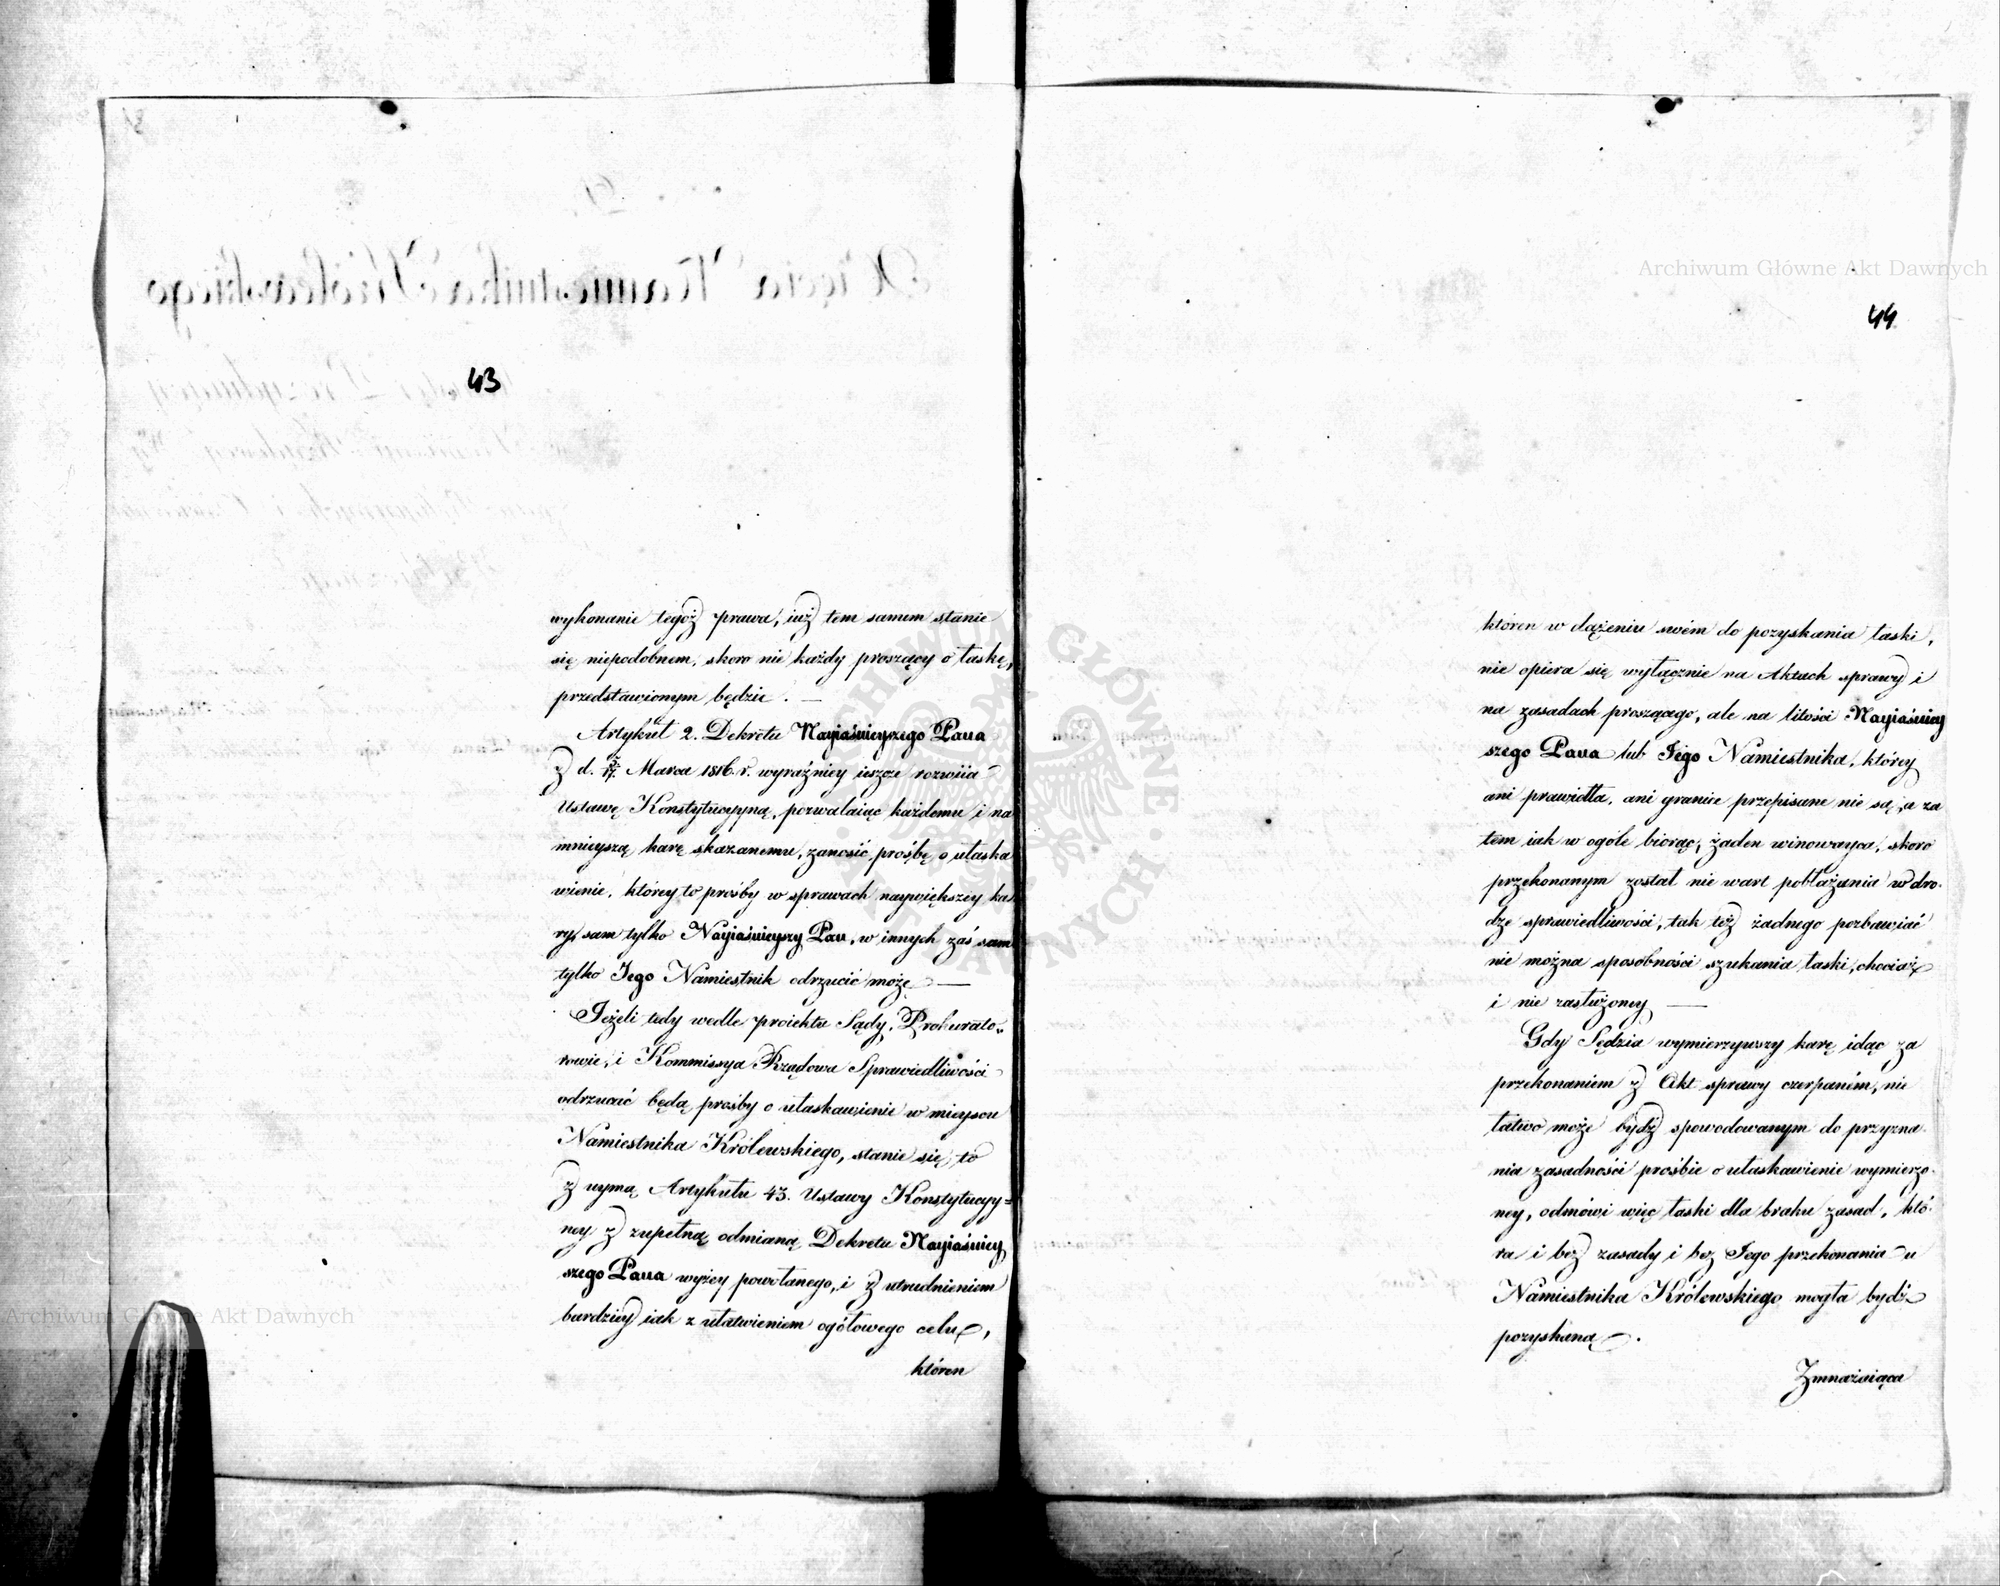 43
wykonanie tegoż prawa, iuż tem samem stanie
się niepodobnem, skoro nie każdy proszący o łaskę,
przedstawionym będzie. —
Artykuł 2. Dekretu Nayiaśnieyszego Pana
z d. 5/17. Marca 1816. r. wyraźniey ieszcze rozwiia
Ustawę Konstytucyyną, pozwalaiąc każdemu i na
mnieyszą karę skazanemu, zanosić prośbę o ułaska
wienie, którey to prośby w sprawach największey ka
ry, sam tylko Nayiaśnieyszy Pan, w innych zaś sam
tylko Jego Namiestnik odrzucić może —
Jeżeli tedy wedle proiektu Sądy, Prokurato-
rowie, i Kommissya Rządowa Sprawiedliwości
odrzucać będą prośby o ułaskawienie w mieyscu
Namiestnika Królewskiego, stanie się to
z uymą Artykułu 43. Ustawy Konstytucyy=
ney z zupełną odmianą Dekretu Nayiaśniey
szego Pana wyżey powołanego, i z utrudnieniem
bardziey iak z ułatwieniem ogółowego celu,
któren
44
któren w dążeniu swém do pozyskania łaski,
nie opiera się wyłącznie na Aktach sprawy i
na zasadach proszącego, ale na litości Nayiaśniey
szego Pana lub Jego Namiestnika, którey
ani prawidła, ani granice przepisane nie są, a za
tem iak w ogóle biorąc, żaden winowayca, skoro
przekonanym został nie wart pobłażania w dro-
dze sprawiedliwości, tak też żadnego pozbawiać
nie można sposobności szukania łaski, chociaż
i nie zasłużoney —
Gdy Sędzia wymierzywszy karę idąc za
przekonaniem z Akt sprawy czerpaném, nie
łatwo może bydź spowodowanym do przyzna-
nia zasadności prośbie o ułaskawienie wymierzo-
ney, odmówi więc łaski dla braku zasad, któ-
ra i bez zasady i bez Jego przekonania u
Namiestnika Królewskiego mogła bydź
pozyskaną.
Zmnażaiąca
Archiwum Główne Akt Dawnych
Archiwum Główne Akt Dawnych